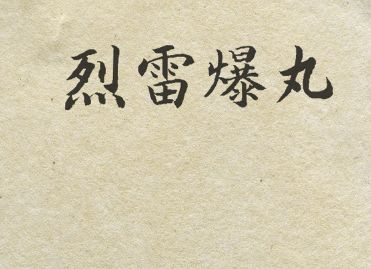 烈雷爆丸